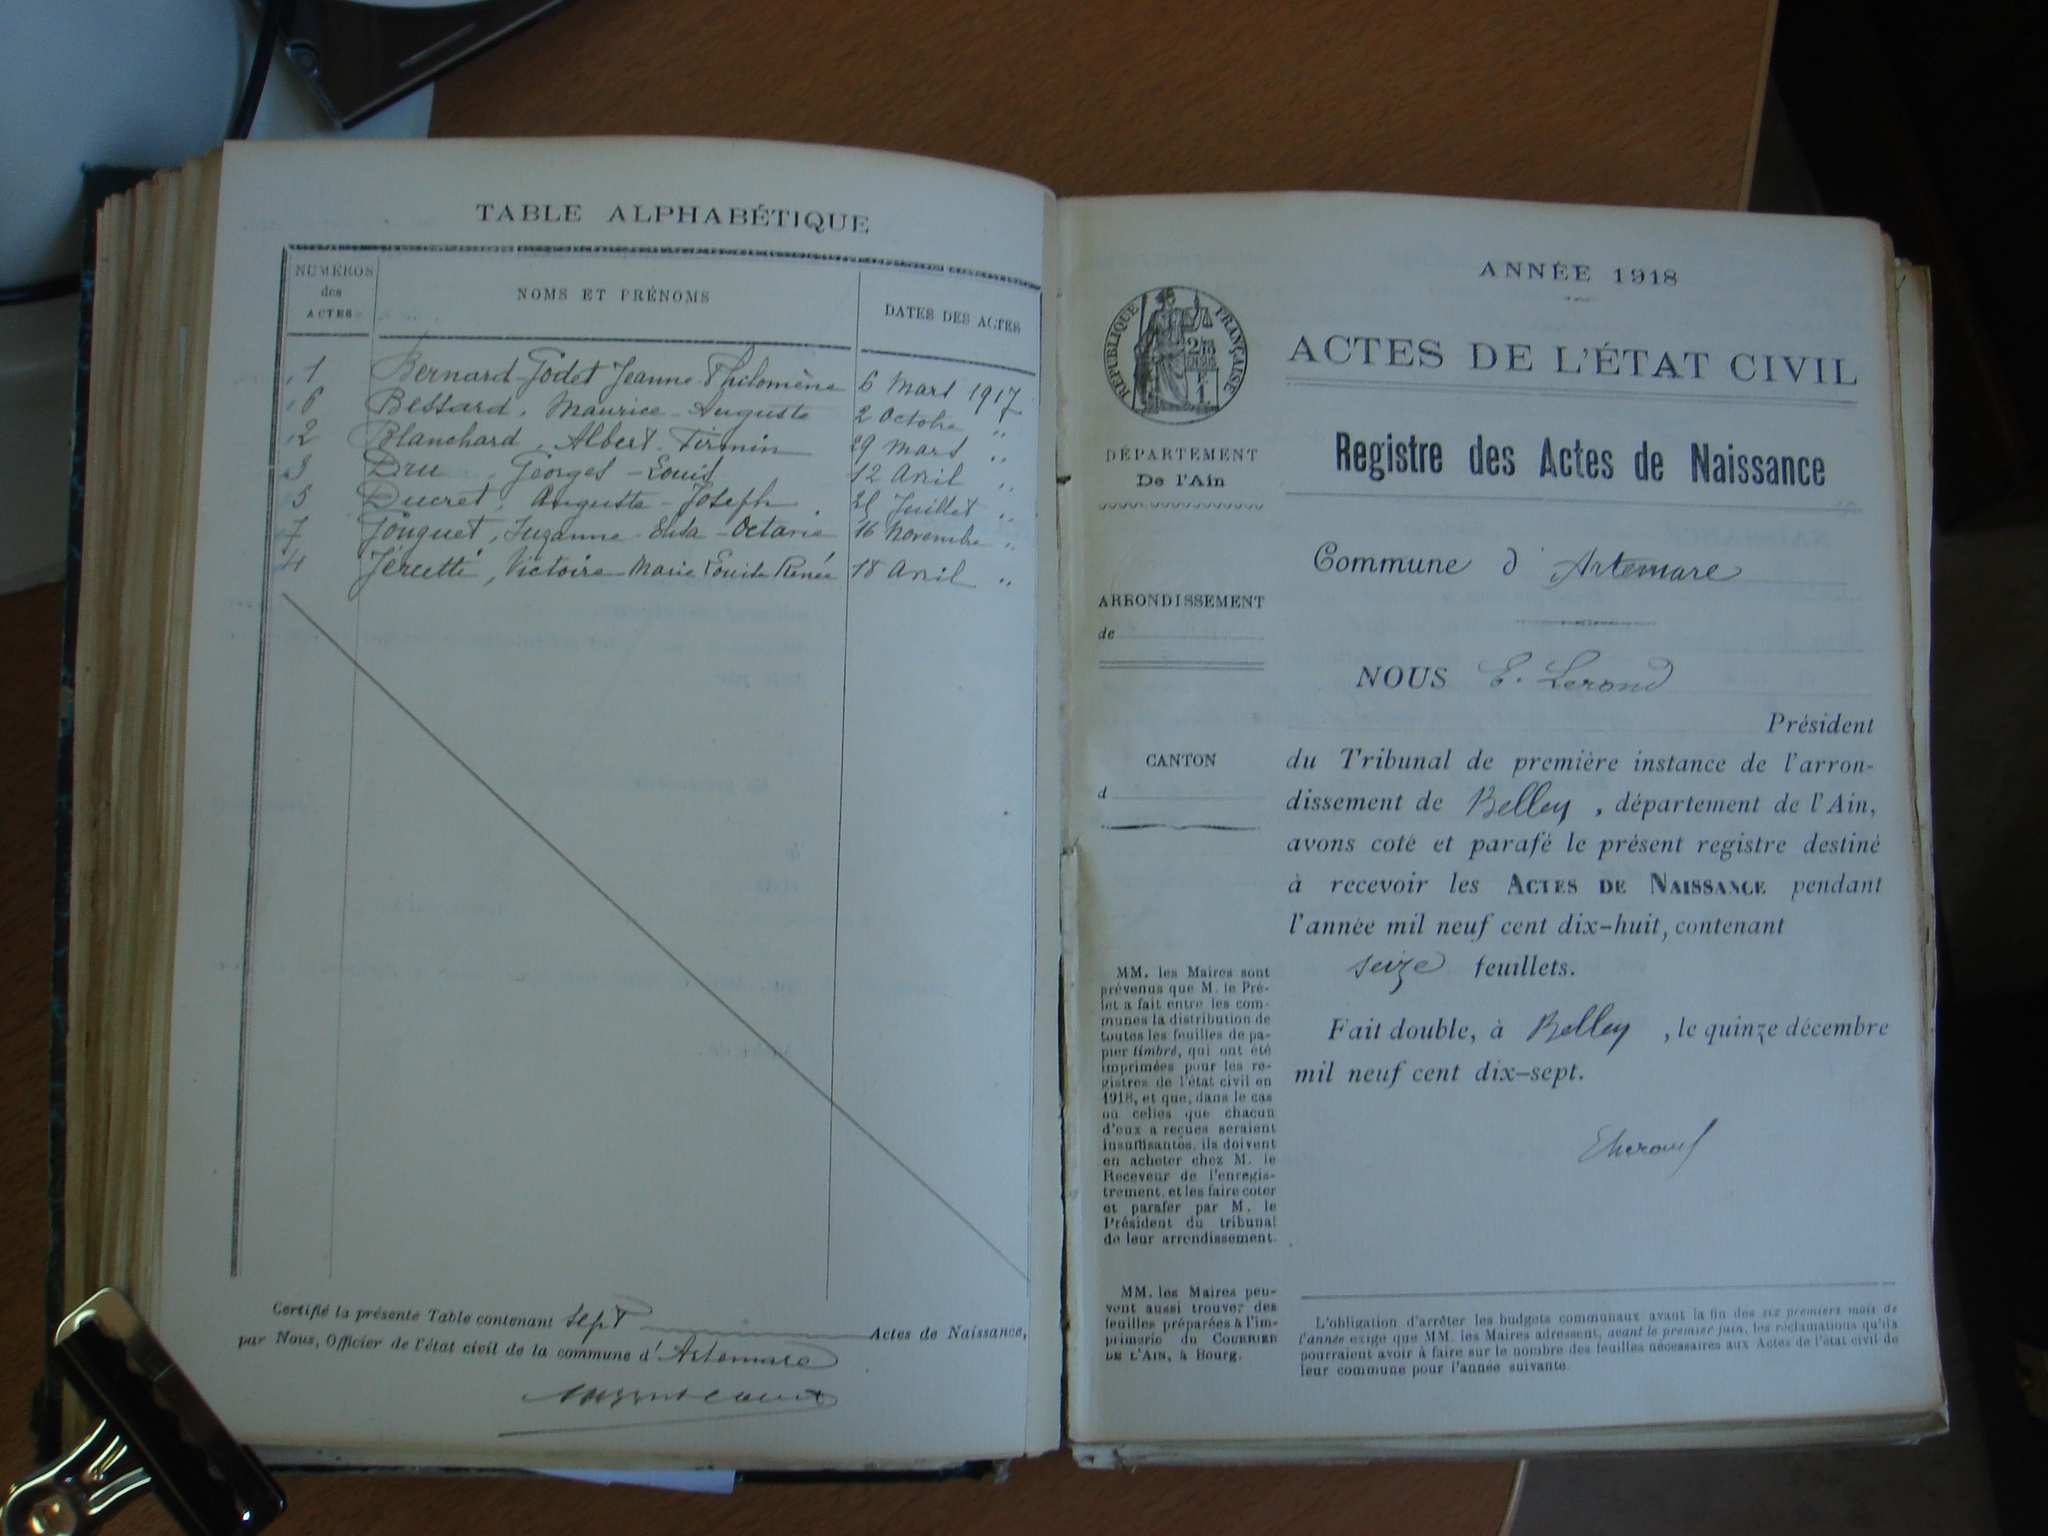 TABLE ALPHABÉTIQUE
NUMÉROS des ACTES
NOMS ET PRÉNOMS
DATES DES ACTES
1 Bernard-Godet Jeanne Philomène 6 Mars 1917
6 Bessard, Maurice-Auguste 2 Octobre "
2 Blanchard, Albert-Firmin 29 Mars "
3 Dru, Georges-Louis 12 Avril "
5 Ducret, Auguste-Joseph. Juillet "
7 Suzanne-Octavie 16 Novembre "
4 Victoire Marie Louise Renée 18 Avril "
Certifié la présente Table contenant sept Actes de Naissance,
par Nous, Officier de l'état civil de la commune d' Artemare
ANNÉE 1918
RÉPUBLIQUE FRANÇAISE
ACTES DE L'ÉTAT CIVIL
Registre des Actes de Naissance
DÉPARTEMENT
De l'Ain
ARRONDISSEMENT
de
CANTON
d
MM. les Maires sont
prévenus que M. le Pré-
fet a fait entre les com-
munes la distribution de
toutes les feuilles de pa-
pier timbré, qui ont été
imprimées pour les re-
gistres de l'état civil en
1918, et que, dans le cas
où celles que chacun
d'eux a reçues seraient
insuffisantes, ils doivent
en acheter chez M. le
Receveur de l'enregis-
trement, et les faire coter
et parafer par M. le
Président du tribunal
de leur arrondissement.
MM. les Maires peu-
vent aussi trouver des
feuilles préparées à l'im-
primerie du COURRIER
DE L'AIN, à Bourg.
Commune d'Artemare
NOUS E. Lerond
Président
du Tribunal de première instance de l'arron-
dissement de Belley, département de l'Ain,
avons coté et parafé le présent registre destiné
à recevoir les ACTES DE NAISSANCE pendant
l'année mil neuf cent dix-huit, contenant
seize feuillets.
Fait double, à Belley, le quinze décembre
mil neuf cent dix-sept.
L'obligation d'arrêter les budgets communaux avant la fin des six premiers mois de
l'année exige que MM. les Maires adressent, avant le premier juin, les réclamations qu'ils
pourraient avoir à faire sur le nombre des feuilles nécessaires aux Actes de l'état civil de
leur commune pour l'année suivante.